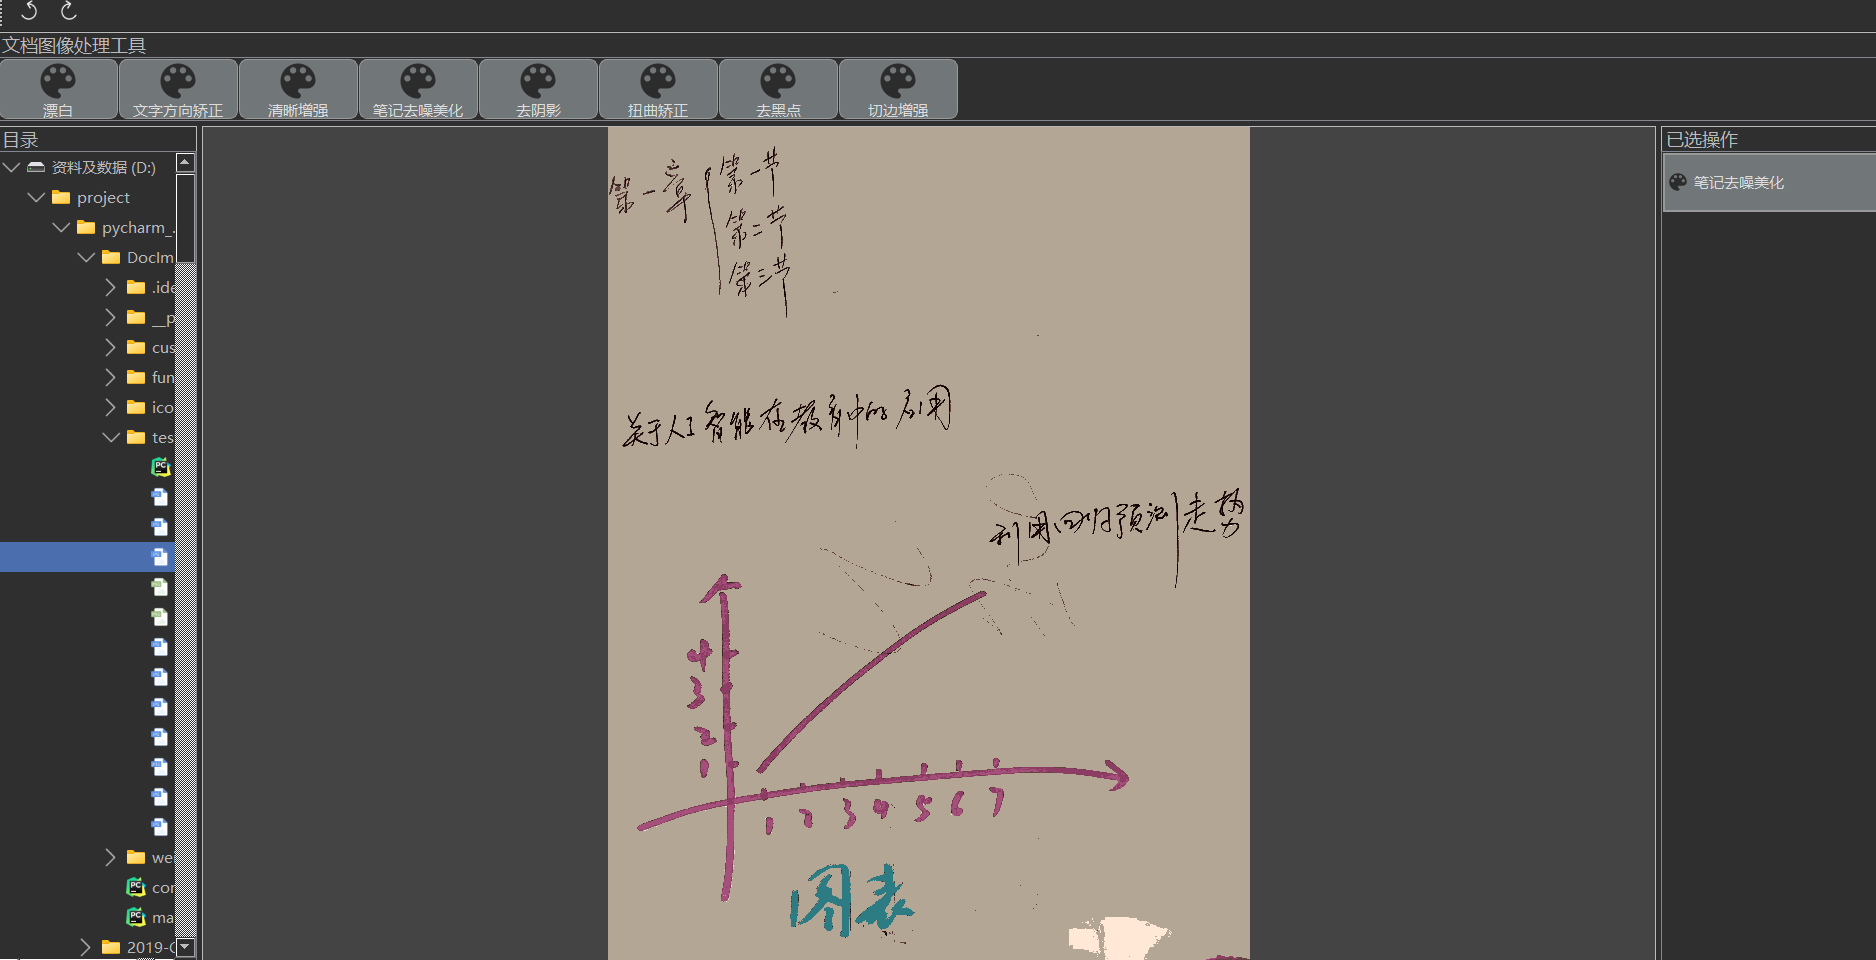 文档图像处理工具
漂白
文字方向矫正
清晰增强
笔记去噪美化
去阴影
扭曲矫正
去黑点
切边增强
目录
资料及数据 (D:)
project
pycharm_.
DocIm
.ide
__p
cus
fun
ico
tes
we
con
ma
2019-C
第一章
第一节
第二节
第三节
关于人工智能在教育中的应用
利用回归预测走势
4
3
2
1
1 2 3 4 5 6 7
图表
已选操作
笔记去噪美化